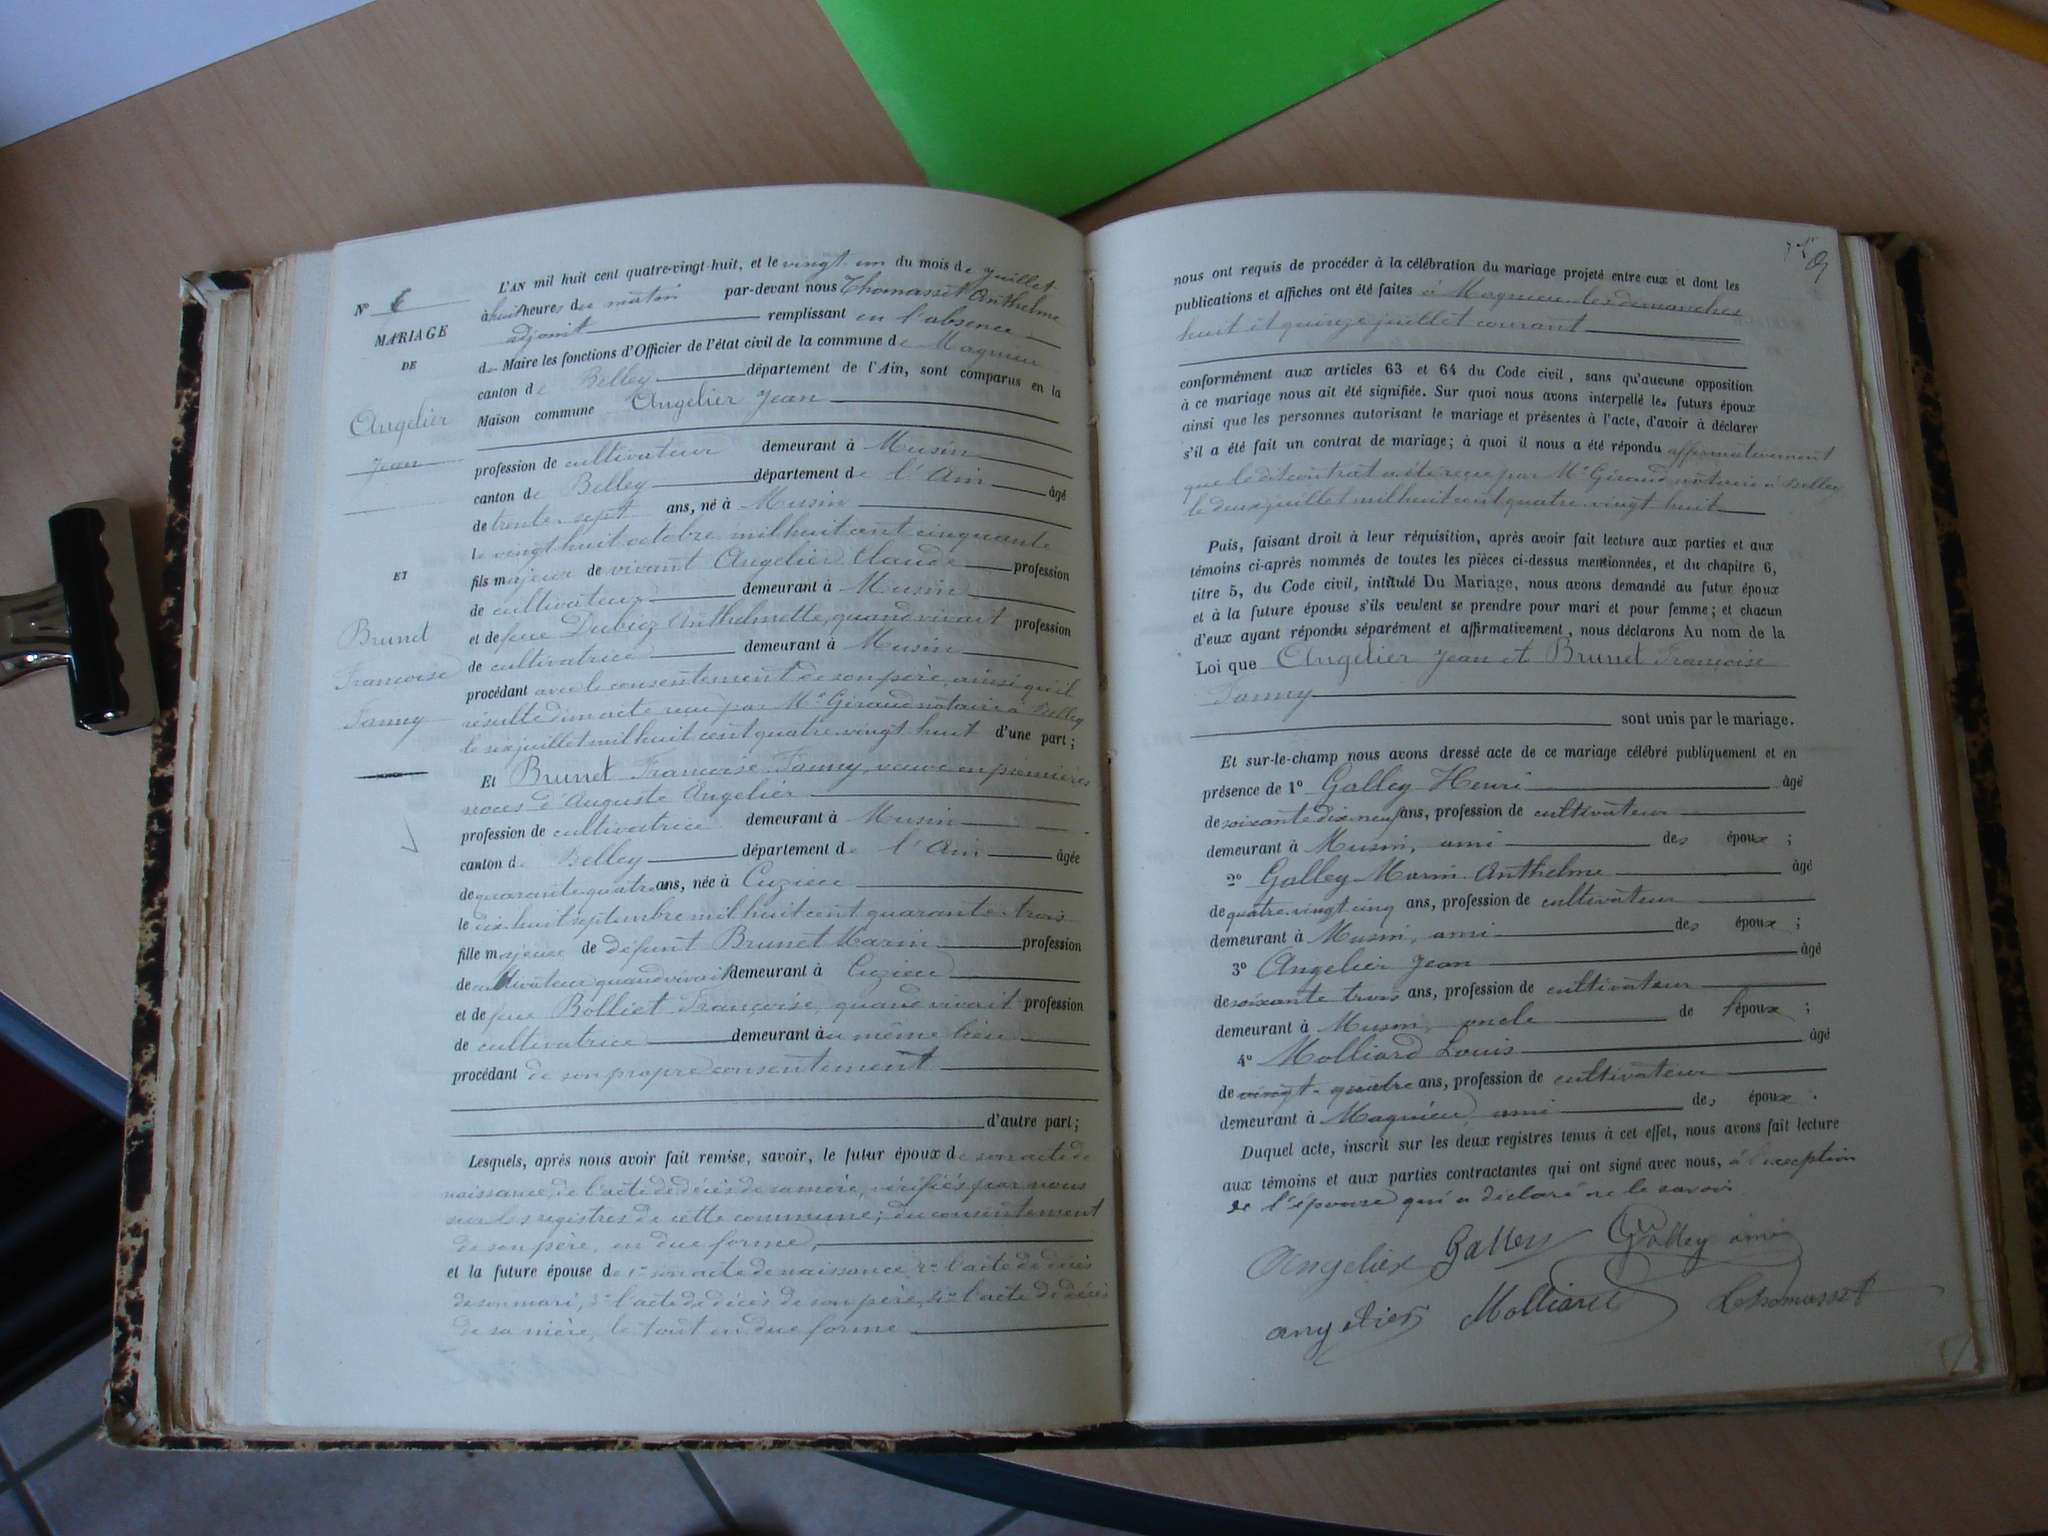 L'AN mil huit cent quatre-vingt-huit, et le vingt-un du mois de Juillet
N°
à huit heures du matin par-devant nous Thomasset Anthelme
adjoint remplissant en l'absence
MARIAGE
DE
Angelier
Jean
ET
Brunet
Françoise
Fanny
de Maire les fonctions d'Officier de l'état civil de la commune de Magnieu
canton de Belley département de l'Ain, sont comparus en la
Maison commune Angelier Jean
profession de cultivateur demeurant à Musin
canton de Belley département de l'Ain âgé
de trente-sept ans, né à Musin
le vingt huit octobre mil huit cent cinquante
fils majeur de vivant Angelier Claude profession
de cultivateur demeurant à Musin
et de feue Dubiez Anthelmette, quand vivait profession
de cultivatrice demeurant à Musin
procédant avec le consentement de son père, ainsi qu'il
résulte d'un acte reçu par Me Giraud notaire à Belley
le six juillet mil huit cent quatre vingt huit d'une part ;
Et Brunet Françoise Fanny, veuve en premières
noces d'Auguste Angelier
profession de cultivatrice demeurant à Musin
canton de Belley département de l'Ain âgée
de quarante quatre ans, née à Cuzieu
le dix huit septembre mil huit cent quarante-trois
fille majeure de défunt Brunet Marin profession
de cultivateur quand vivait demeurant à Cuzieu
et de feue Bolliet Françoise, quand vivait profession
de cultivatrice demeurant au même lieu
procédant de son propre consentement
d'autre part ;
Lesquels, après nous avoir fait remise, savoir, le futur époux de son acte de
naissance, de l'acte de décès de sa mère, vérifiés par nous
sur les registres de cette commune ; du consentement
de son père, en due forme,
et la future épouse de 1° son acte de naissance, 2° l'acte de décès
de son mari, 3° l'acte de décès de son père, 4° l'acte de décès
de sa mère, le tout en due forme
nous ont requis de procéder à la célébration du mariage projeté entre eux et dont les
publications et affiches ont été faites à Magnieu les dimanches
huit et quinze juillet courant
conformément aux articles 63 et 64 du Code civil, sans qu'aucune opposition
à ce mariage nous ait été signifiée. Sur quoi nous avons interpellé les futurs époux
ainsi que les personnes autorisant le mariage et présentes à l'acte, d'avoir à déclarer
s'il a été fait un contrat de mariage ; à quoi il nous a été répondu affirmativement
que le dit contrat a été reçu par Me Giraud notaire à Belley
le deux juillet mil huit cent quatre vingt huit
Puis, faisant droit à leur réquisition, après avoir fait lecture aux parties et aux
témoins ci-après nommés de toutes les pièces ci-dessus mentionnées, et du chapitre 6,
titre 5, du Code civil, intitulé Du Mariage, nous avons demandé au futur époux
et à la future épouse s'ils veulent se prendre pour mari et pour femme ; et chacun
d'eux ayant répondu séparément et affirmativement, nous déclarons Au nom de la
Loi que Angelier Jean et Brunet Françoise
Fanny
sont unis par le mariage.
Et sur-le-champ nous avons dressé acte de ce mariage célébré publiquement et en
présence de 1° Galley Henri âgé
de soixante dix neuf ans, profession de cultivateur
demeurant à Musin, ami des époux ;
2° Galley Marin Anthelme âgé
de quatre vingt cinq ans, profession de cultivateur
demeurant à Musin, ami des époux ;
3° Angelier Jean âgé
de soixante trois ans, profession de cultivateur
demeurant à Musin, oncle de l'époux ;
4° Molliard Louis âgé
de vingt-quatre ans, profession de cultivateur
demeurant à Magnieu, ami des époux.
Duquel acte, inscrit sur les deux registres tenus à cet effet, nous avons fait lecture
aux témoins et aux parties contractantes qui ont signé avec nous, à l'exception
de l'épouse qui a déclaré ne le savoir
Angelier Galley Galley ami
angelier Molliard Thomasset